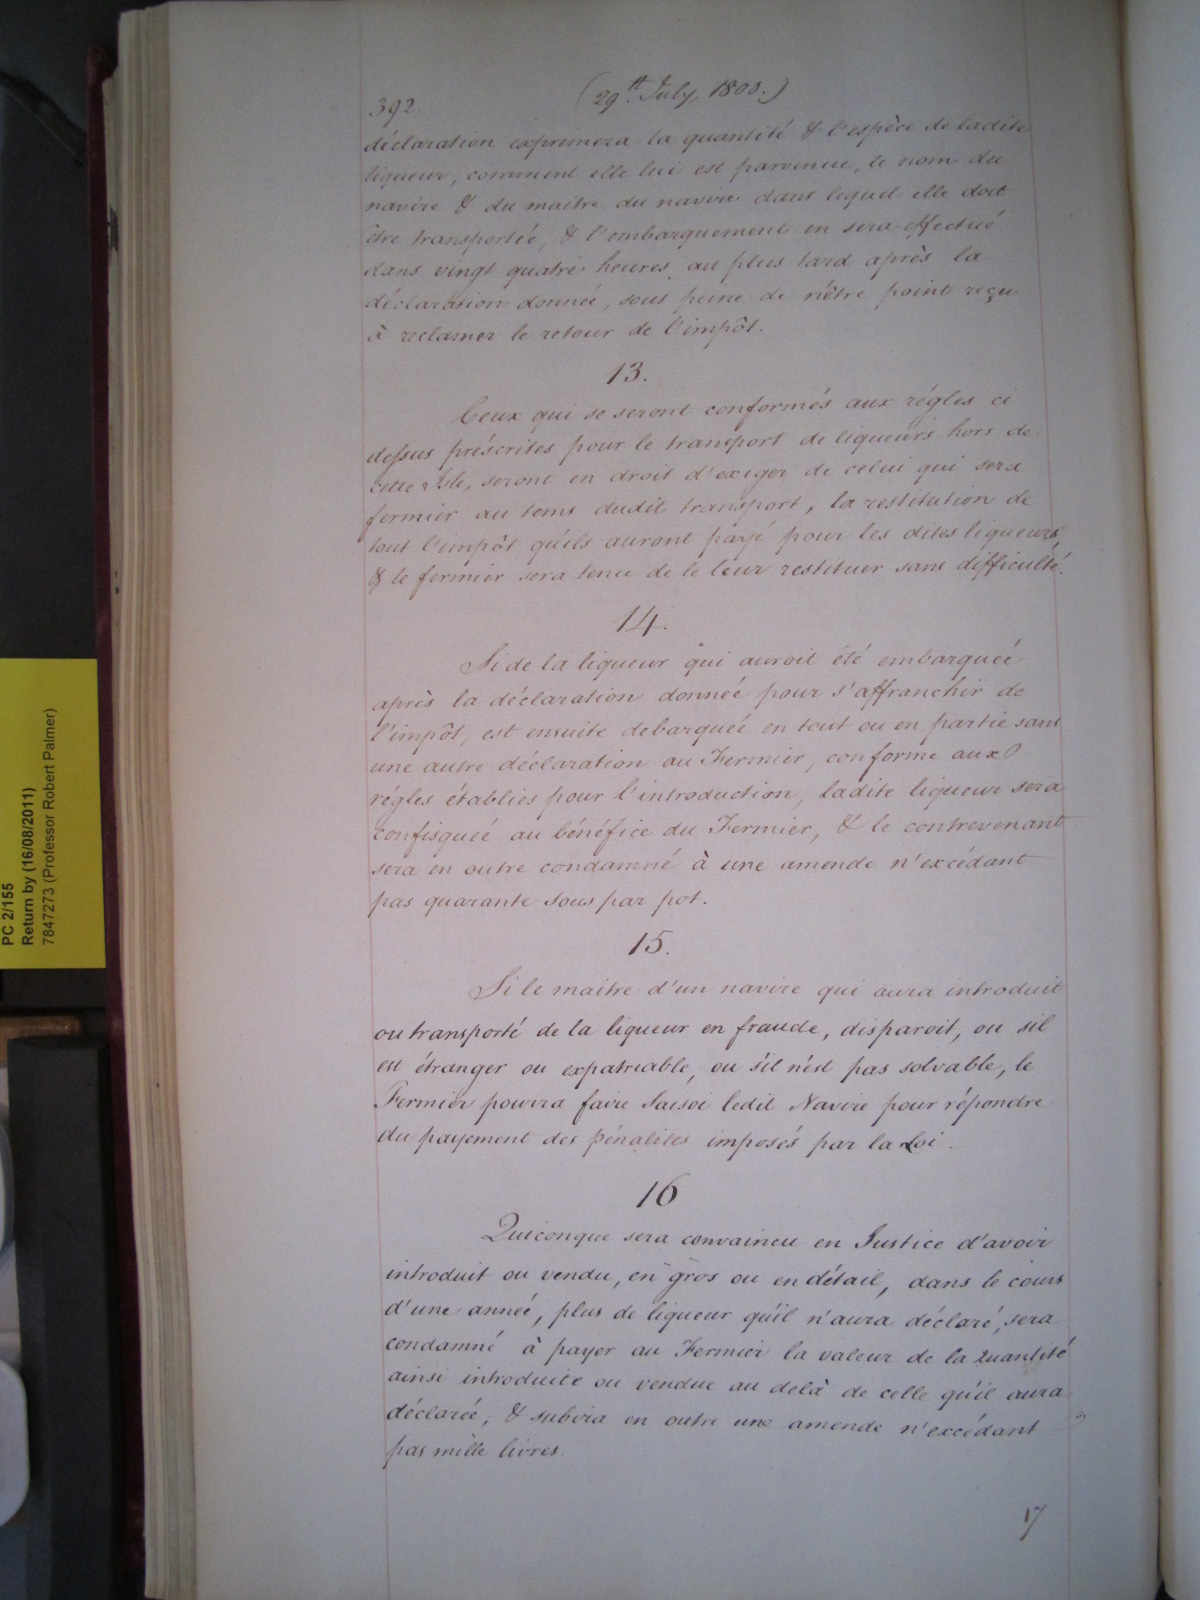 392.
(29th July, 1800.)
déclaration exprimera la quantité & l'espèce de ladite
liqueur, comment elle lui est parvenue, le nom du
navire & du maitre du navire dans lequel elle doit
être transportée, & l'embarquement en sera effectué
dans vingt quatre heures, au plus tard après la
déclaration donnée, sous peine de n'être point reçu
à reclamer le retour de l'impôt.
13.
Ceux qui se seront conformés aux régles ci
dessus préscrites pour le transport de liqueurs hors de
cette Isle, seront en droit d'exiger de celui qui sera
fermier au tems dudit transport, la restitution de
tout l'impôt qu'ils auront payé pour les dites liqueurs,
& le fermier sera tenu de le leur restituer sans difficulté.
14.
Si de la liqueur qui auroit été embarqueé
après la déclaration donneé pour s'affranchir de
l'impôt, est ensuite debarqueé en tout ou en partie sans
une autre déclaration au Fermier, conforme aux
régles établies pour l'introduction, ladite liqueur sera
confisqueé au bénéfice du Fermier, & le contrevenant
sera en outre condamné à une amende n'excédant
pas quarante sous par pot.
15.
Si le maitre d'un navire qui aura introduit
ou transporté de la liqueur en fraude, disparoit, ou sil
est étranger ou expatriable, ou s'il n'est pas solvable, le
Fermier pourra faire Saisir ledit Navire pour répondre
du payement des pénalites imposés par la Loi.
16
Quiconque sera convaincu en Justice d'avoir
introduit ou vendu, en gros ou en détail, dans le cours
d'une anneé, plus de liqueur qu'il n'aura déclaré, sera
condamné à payer au Fermier la valeur de la quantité
ainsi introduite ou vendue au delà de celle qu'il aura
déclarée, & subira en outre une amende n'excédant
pas mille livres.
17
PC 2/155
Return by (16/08/2011)
7847273 (Professor Robert Palmer)